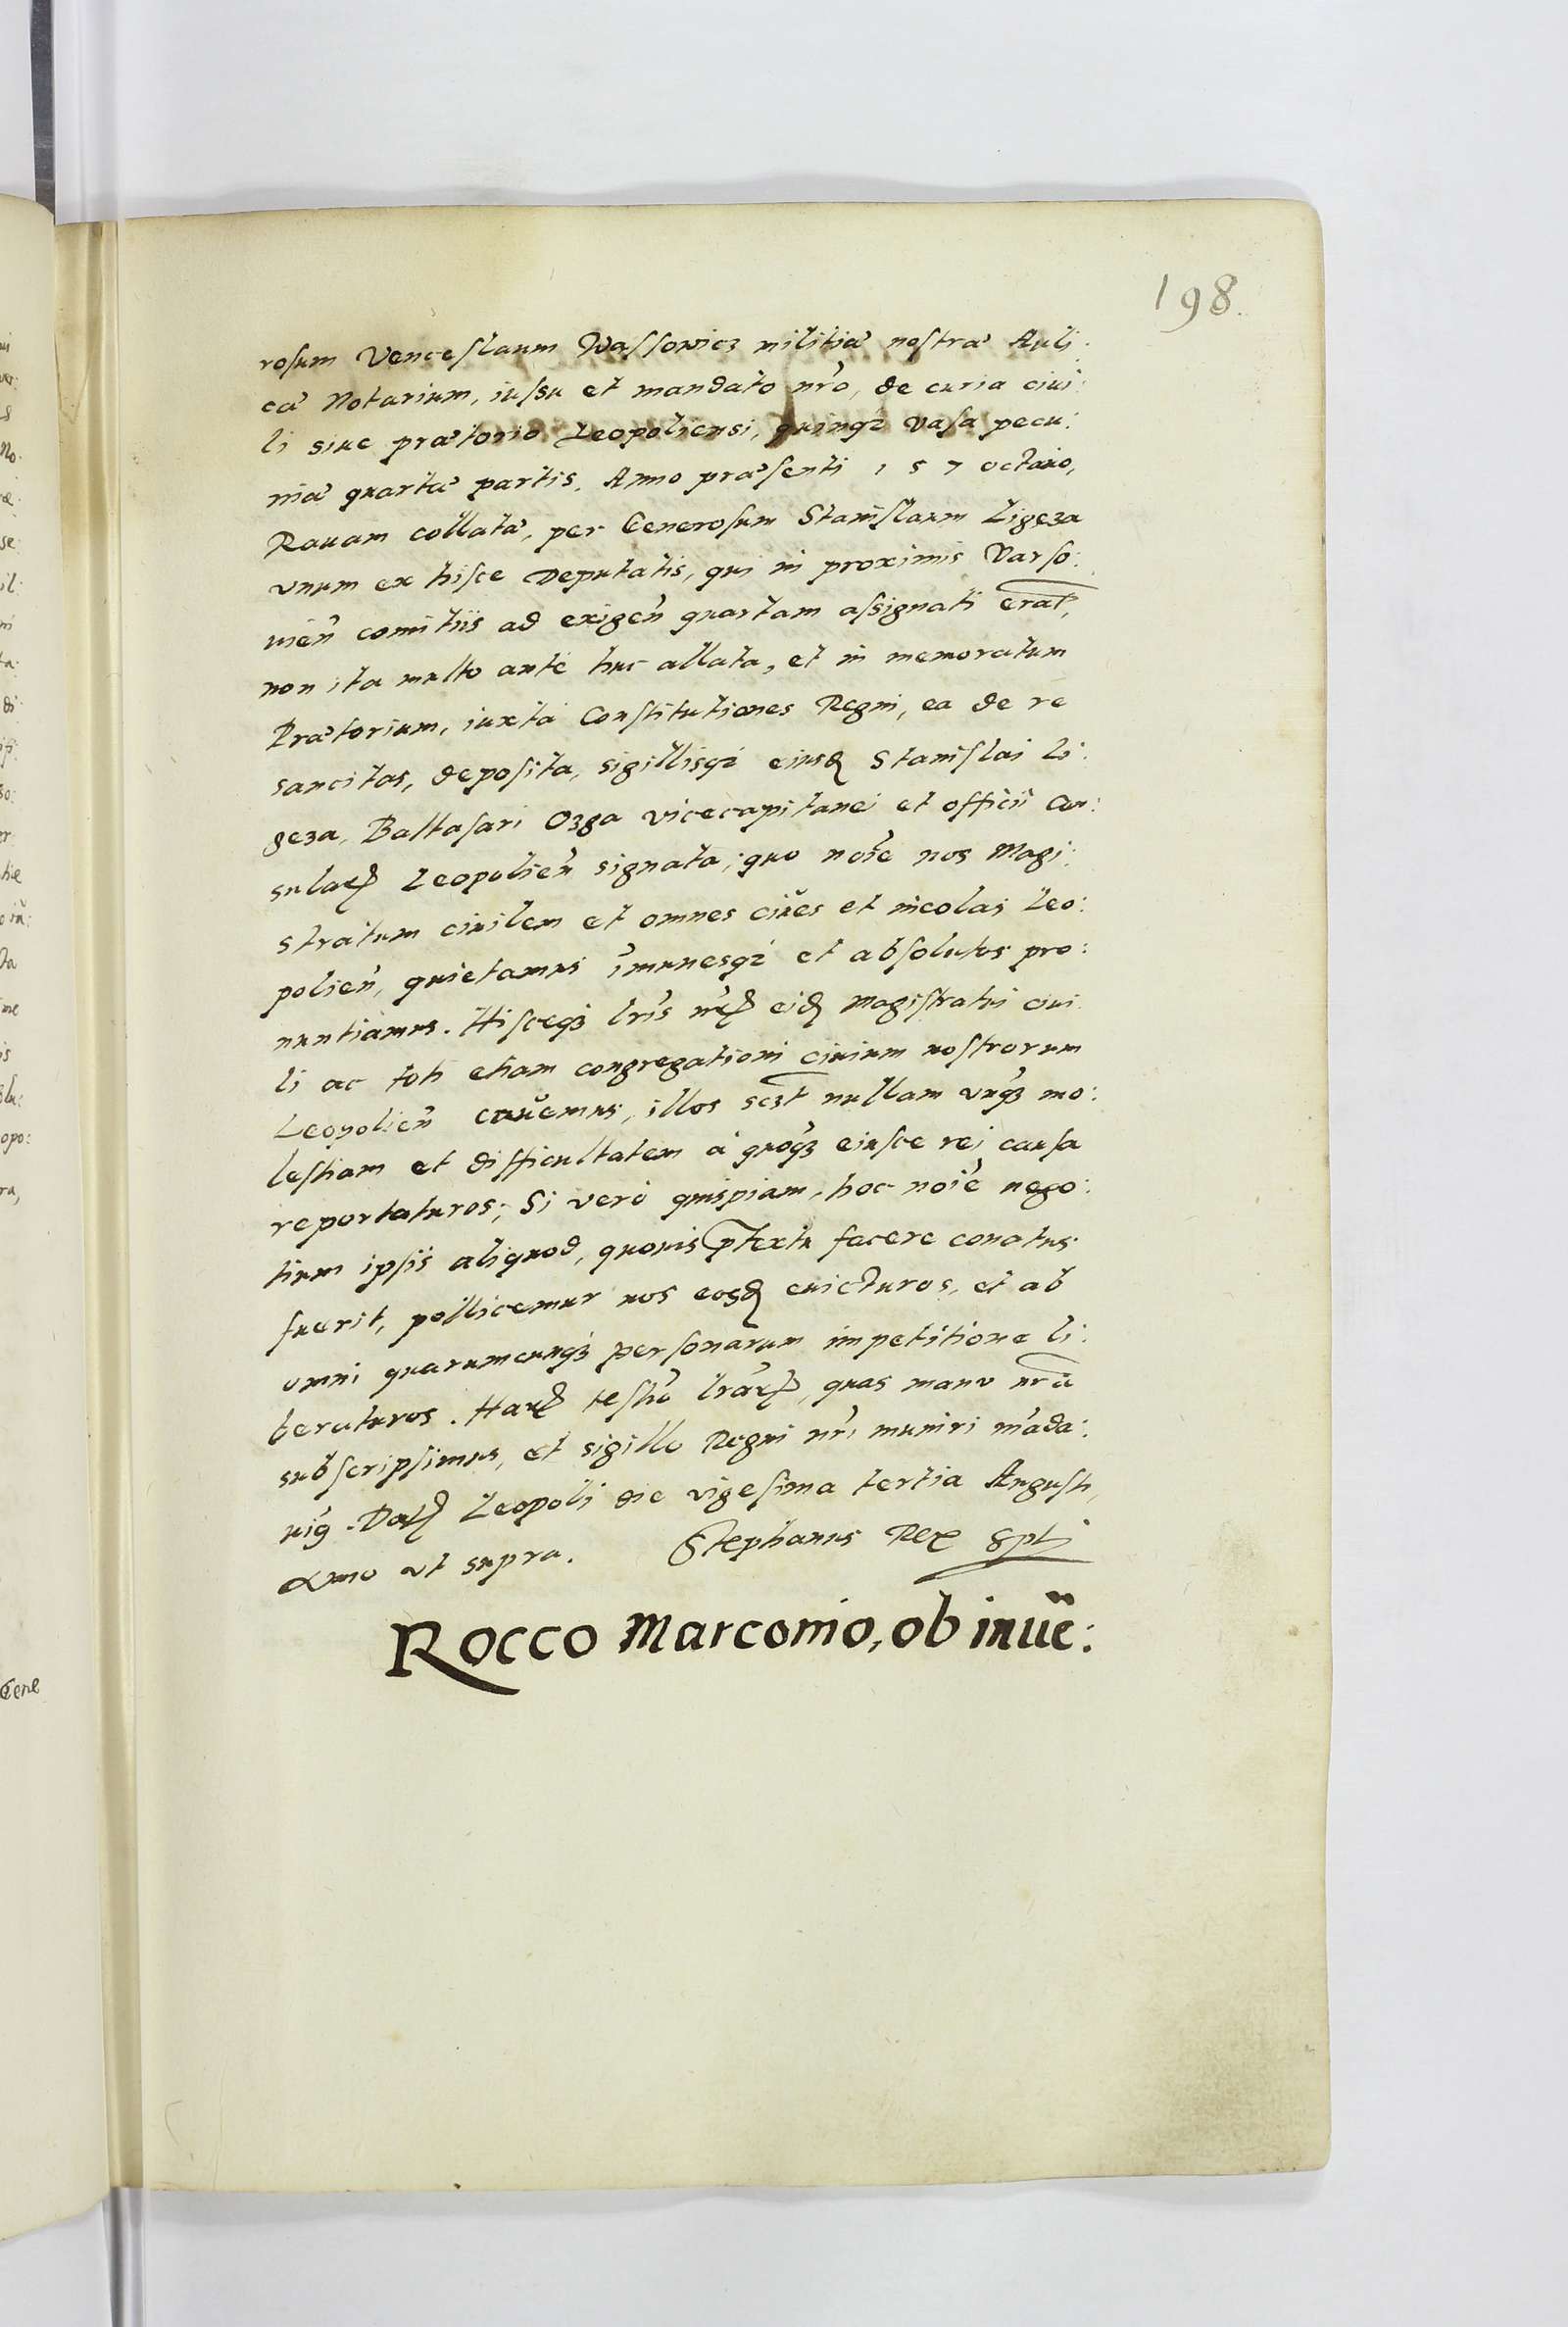 198.
rosum Venceslaum Wassowicz militiæ nostræ Auli:
cæ Notarium, iussu et mandato nr̃o, de curia ciui:
li siue prætorio Leopoliensi, quinqȝ vasa pecu:
niæ quartæ partis, Anno præsenti 157 octauo,
Rauam collatæ, per Generosum Stanislaum Ligęza
vnum ex hisce Deputatis, qui in proximis Varso:
uień comitiis ad exigeñ quartam assignati erãt,
non ita multo ante huc allata, et in memoratum
Prætorium, iuxta Constitutiones Regni, ea de re
sancitas, deposita, sigillisqȝ eiusd̃ Stanislai Li:
geza, Baltasari Ozga vicecapitanei et officii Con:
sularꝭ Leopolieñ signata; quo noĩe nos Magi:
stratum ciuilem et omnes ciues et incolas Leo:
polieñ, quietamus ĩmunesqȝ et absolutos pro:
nuntiamus. Hisceqȝ lr̃is nr̃ꝭ eid̃ Magistratui ciui
li ac toti etiam congregationi ciuium nostrorum
Leopolieñ cauemus, illos scȝt nullam vnqȝ mo:
lestiam et difficultatem à quoqȝ eiusce rei causa
reportaturos; Si verò quispiam, hoc noĩe nego:
tium ipsis aliquod, quouis p̃textu facere conatus
fuerit, pollicemur nos eosd̃ euicturos, et ab
omni quarumcunqȝ personarum impetitione li:
beraturos. Harꝭ testiõ lr̃arꝭ, quas manu nr̃a
subscripsimus, et sigillo Regni nr̃i muniri mãda:
uiꝰ. Datꝭ Leopoli die vigesima tertia Augusti,
Anno vt supra. Stephanus Rex sptꝭ
Rocco Marconio, ob inue: